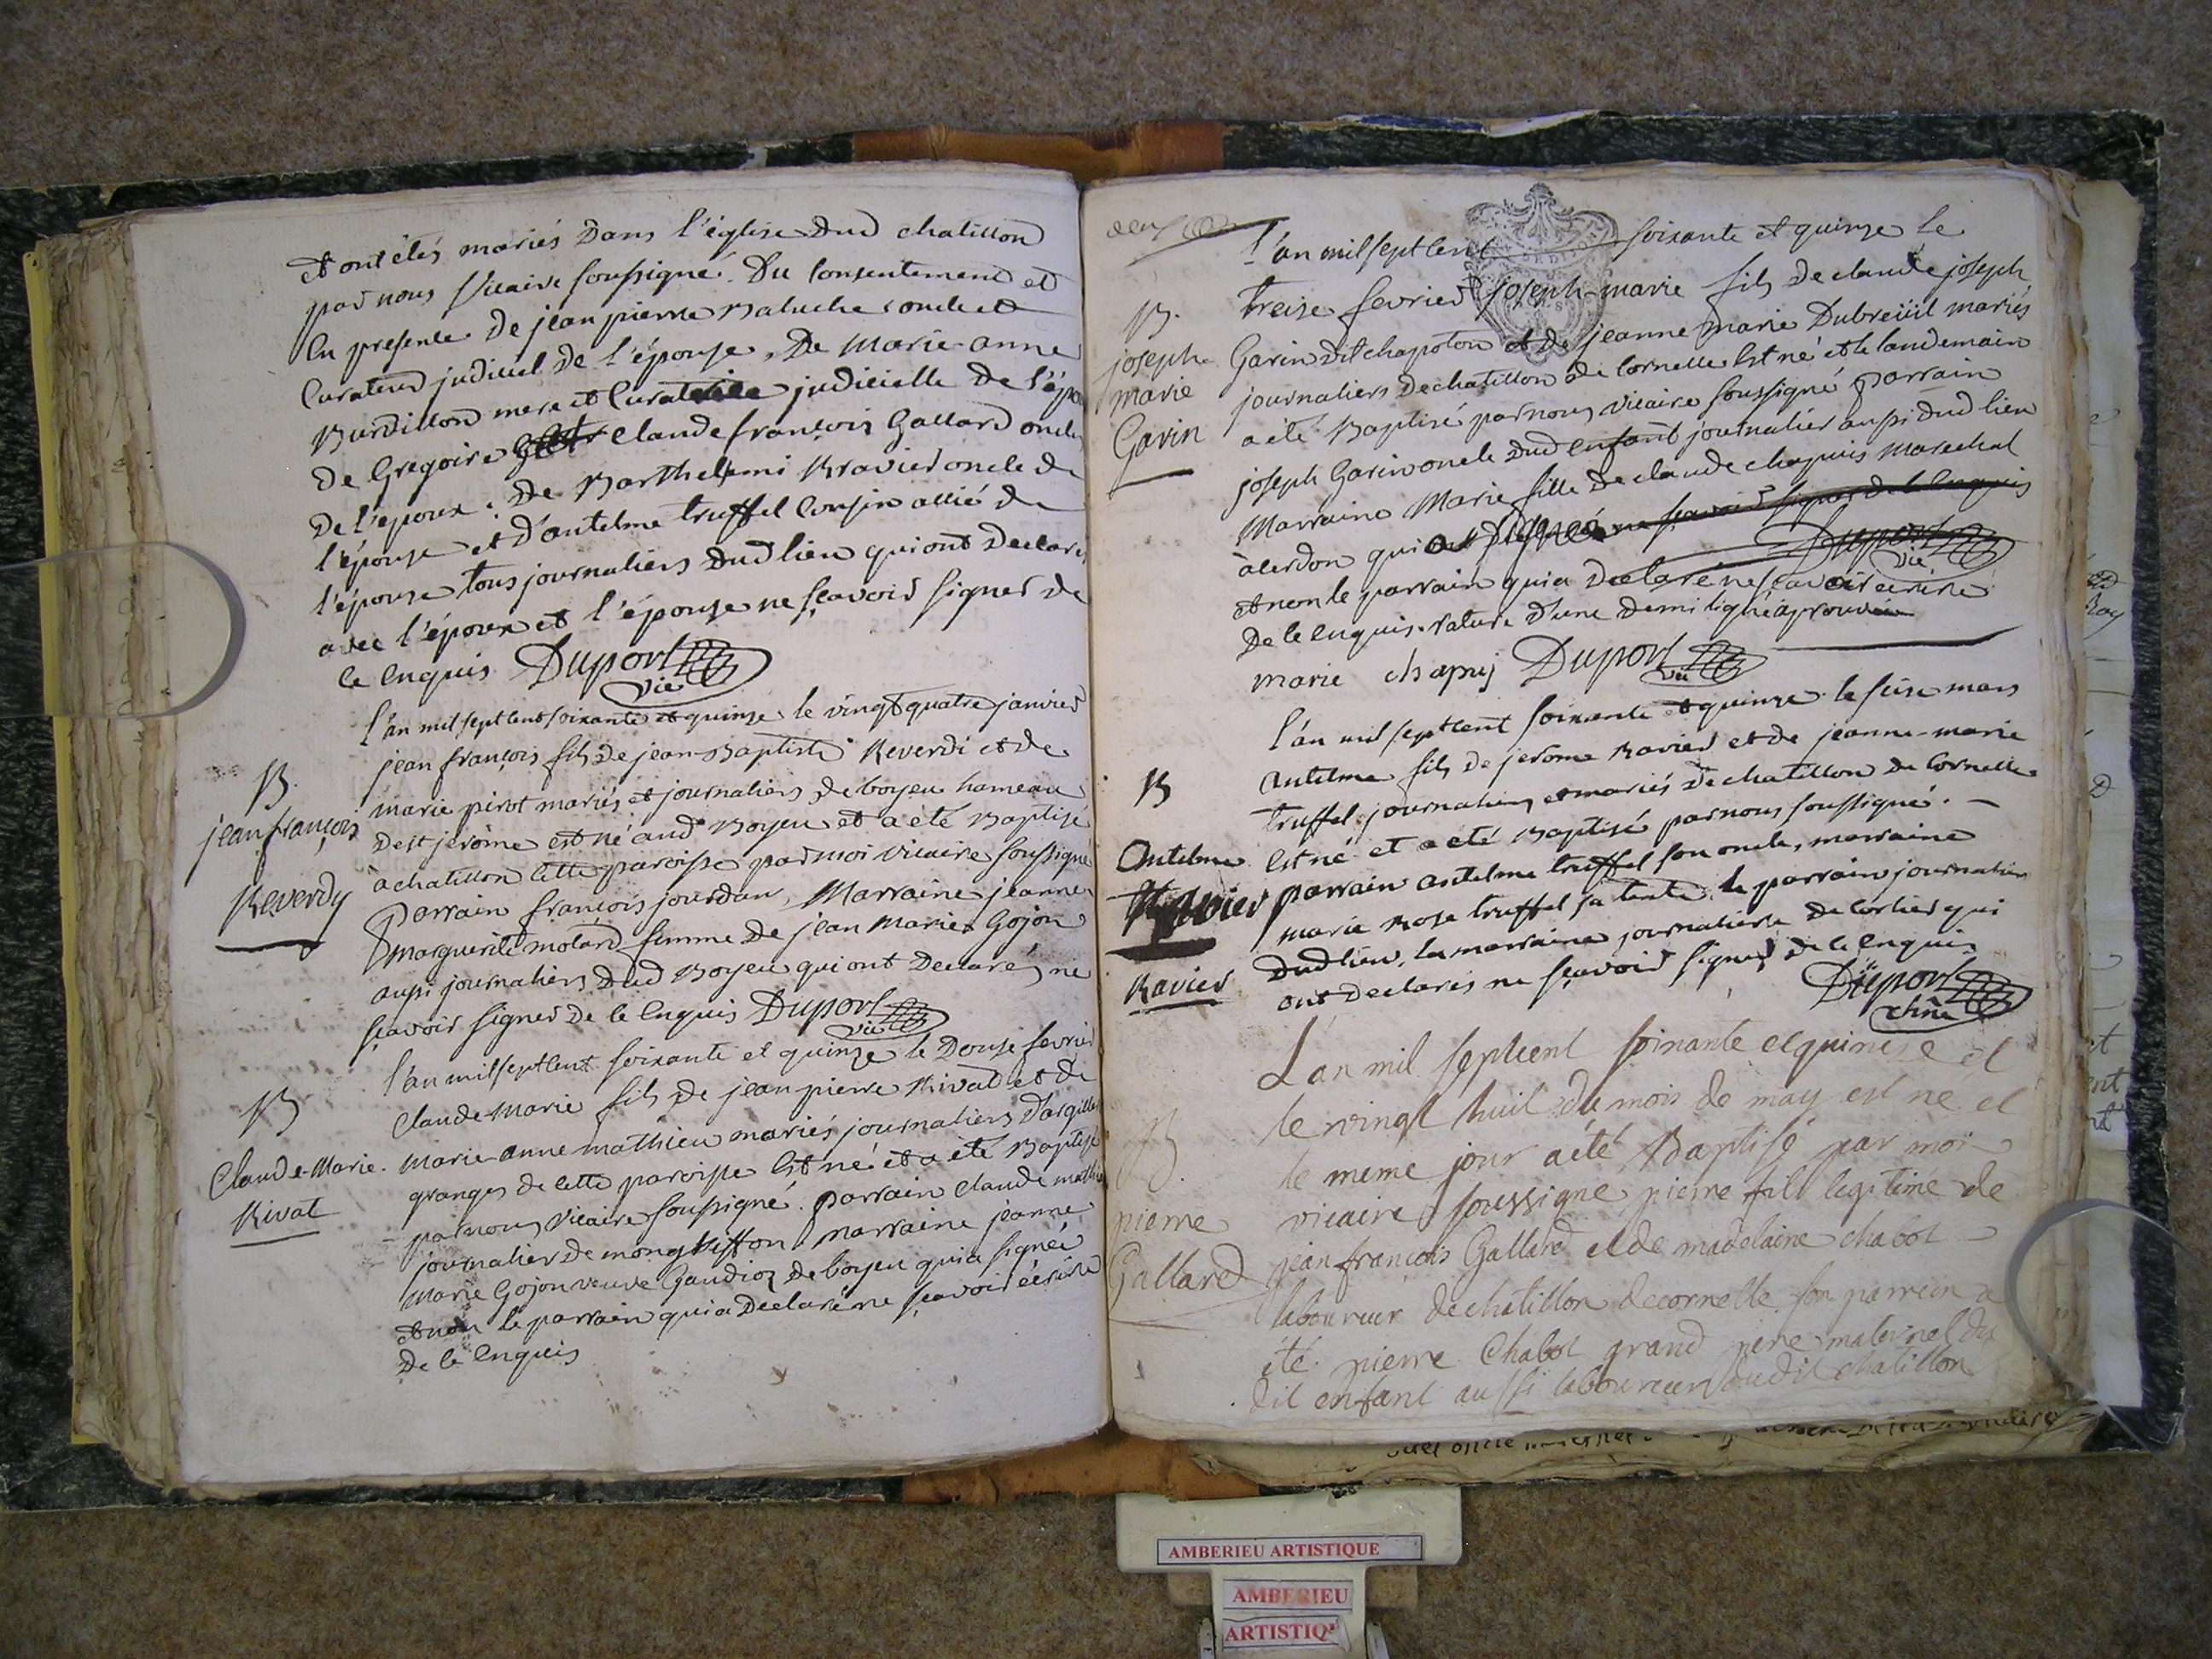 et ont étés mariés Dans l'église Dud chatillon
par nous Vicaire soussigné. Du consentement et
En presence de jean pierre Baluche oncle et
Curateur judiciel de l'épouse, De Marie-anne
Burdillon mere et Curatrice judicielle de l'épo
De Gregoire Claude françois Gallard oncles
De l'epoux, De Barthelemi Ravier oncle de
l'épouse et D'antelme truffel Cousin allié de
l'épouse tous journaliers Dud lieu qui ont Declaré
avec l'époux et l'épouse ne sçavoir signer de
ce Enquis Duport vic
l'an mil sept cent soixante et quinze le vingt quatre janvier
B.
jean françois
Reverdy
jean françois fils de jean-Baptiste Reverdi et de
marie pirot mariés et journaliers de boyeu hameau
De st jerôme est né aud Boyeu et a été Baptisé
à chatillon cette paroisse par moi vicaire soussigné
Parrain françois jourdan, Marraine jeanne
Marguerite molard femme de jean Marie Gojon
aussi journaliers Dud Boyeu qui ont Declarés ne
sçavoir signer De ce Enquis Duport vic
l'an mil sept cent soixante et quinze le Douze fevrier
B
Claude-Marie.
Rivat
Claude-Marie fils de jean pierre Rivat et de
Marie-anne mathieu mariés journaliers D'argille
granges de cette paroisse Est né et a été Baptisé
par nous Vicaire soussigné. parrain Claude mathie
journalier de mongriffon, marraine jeanne
Marie Gojon veuve Gaudioz de boyeu qui a signé
et non le parrain qui a Declaré ne sçavoir écrire
De ce Enquis
l'an mil sept cent soixante et quinze le
B.
joseph
marie
Garin
Treize fevrier joseph-marie fils de claude joseph
Garin dit chapoton et de jeanne marie Dubreüil mariés
journaliers de chatillon de Cornelle Est né et le landemain
a été Baptisé par nous vicaire soussigné parrain
joseph Garin oncle Dud enfant journalier aussi dud lieu
Marraine Marie fille de claude chapuis marechal
à cerdon qui a signé ne sçavoir signer de ce Enquis
Duport vic
et non le parrain qui a declaré ne sçavoir écrire
De ce Enquis. rature d'une demi ligne aprouvée
marie chapuy Duport vic
l'an mil sept cent soixante et quinze le seise mars
B
Antelme
Ravier
Antelme fils de jerome Ravier et de jeanne-marie
truffel journaliers et mariés de chatillon de Cornelle
Est né et a été Baptisé par nous soussigné.
parrain antelme truffel son oncle, marraine
marie Rose truffel sa tante. le parrain journalier
Dud lieu, la marraine journaliere de Corlier qui
ont declarés ne sçavoir signer de ce Enquis
Duport
L'an mil septcent soixante et quinze et
B.
pierre
Gallard
le vingt huit du mois de may est ne et
le meme jour a été Baptisé par moi
vicaire soussigne pierre fils legitime de
jean francois Gallard et de madelaine chabot
laboureur de chatillon decornelle son parrein a
été pierre Chabot grand pere maternel du
dit enfant aussi laboureur dudit chatillon
AMBERIEU ARTISTIQUE
AMBERIEU
ARTISTIQ